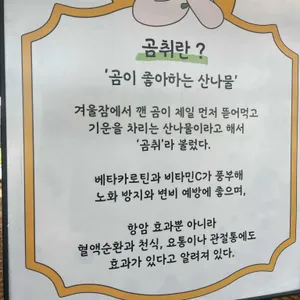 곰취란 ?
'곰이 좋아하는 산나물'
겨울잠에서 깬 곰이 제일 먼저 뜯어먹고
기운을 차리는 산나물이라고 해서
'곰취'라 불렸다.
베타카로틴과 비타민C가 풍부해
노화 방지와 변비 예방에 좋으며,
항암 효과뿐 아니라
혈액순환과 천식, 요통이나 관절통에도
효과가 있다고 알려져 있다.